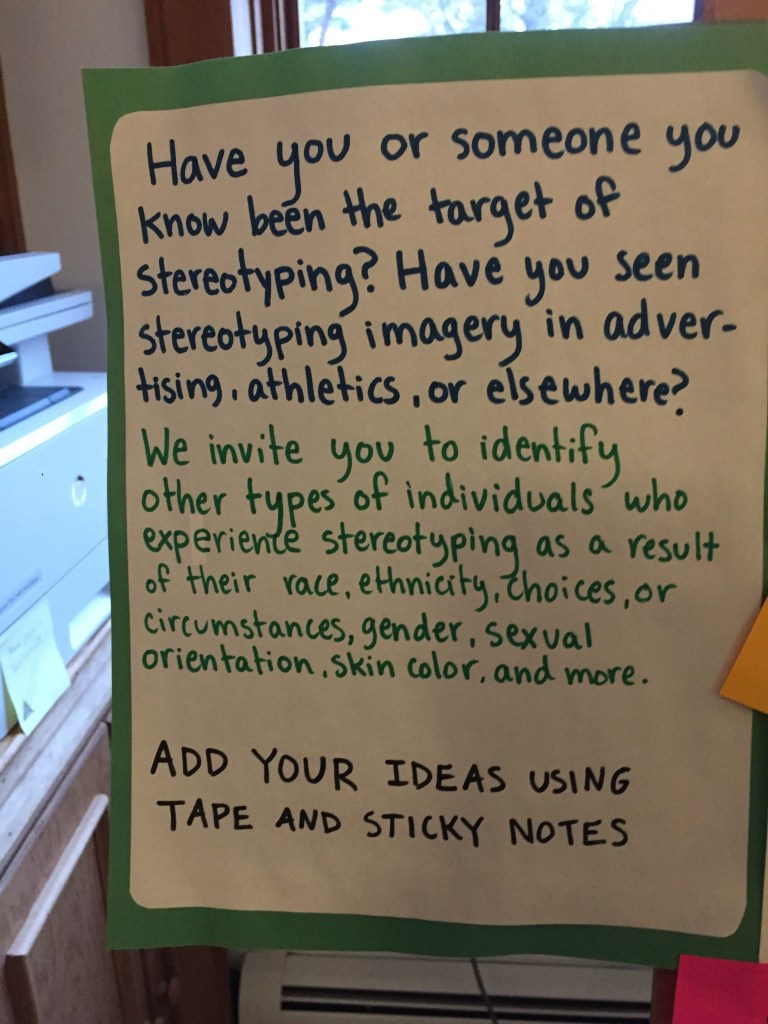 Have you or someone you
know been the target of
stereotyping? Have you seen
stereotyping imagery in adver-
tising, athletics, or elsewhere?
We invite you to identify
other types of individuals who
experience stereotyping as a result
of their race, ethnicity, choices, or
circumstances, gender, sexual
orientation, skin color, and more.
ADD YOUR IDEAS USING
TAPE AND STICKY NOTES